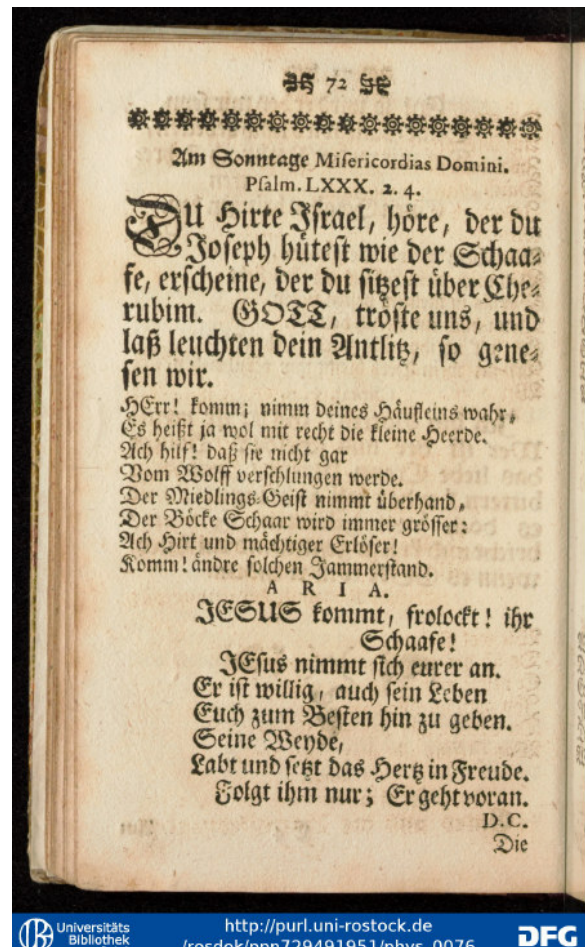 72
Am Sonntage Misericordias Domini.
Psalm. LXXX. 2. 4.
DU Hirte Israel, höre, der du
Joseph hütest wie der Schaa-
fe, erscheine, der du sitzest über Che-
rubim. GOTT, tröste uns, und
laß leuchten dein Antlitz, so gene-
sen wir.
HErr! komm; nimm deines Häufleins wahr,
Es heißt ja wol mit recht die kleine Heerde.
Ach hilf! daß sie nicht gar
Vom Wolff verschlungen werde.
Der Miedlings-Geist nimmt überhand,
Der Böcke Schaar wird immer grösser:
Ach Hirt und mächtiger Erlöser!
Komm! ändre solchen Jammerstand.
ARIA.
JESUS kommt, frolockt! ihr
Schaafe!
JEsus nimmt sich eurer an.
Er ist willig, auch sein Leben
Euch zum Besten hin zu geben.
Seine Weyde,
Labt und setzt das Hertz in Freude.
Folgt ihm nur; Er geht voran.
D.C.
Die
Universitäts
Bibliothek
http://purl.uni-rostock.de
/rosdok/ppn729491951/phys_0076
DFG